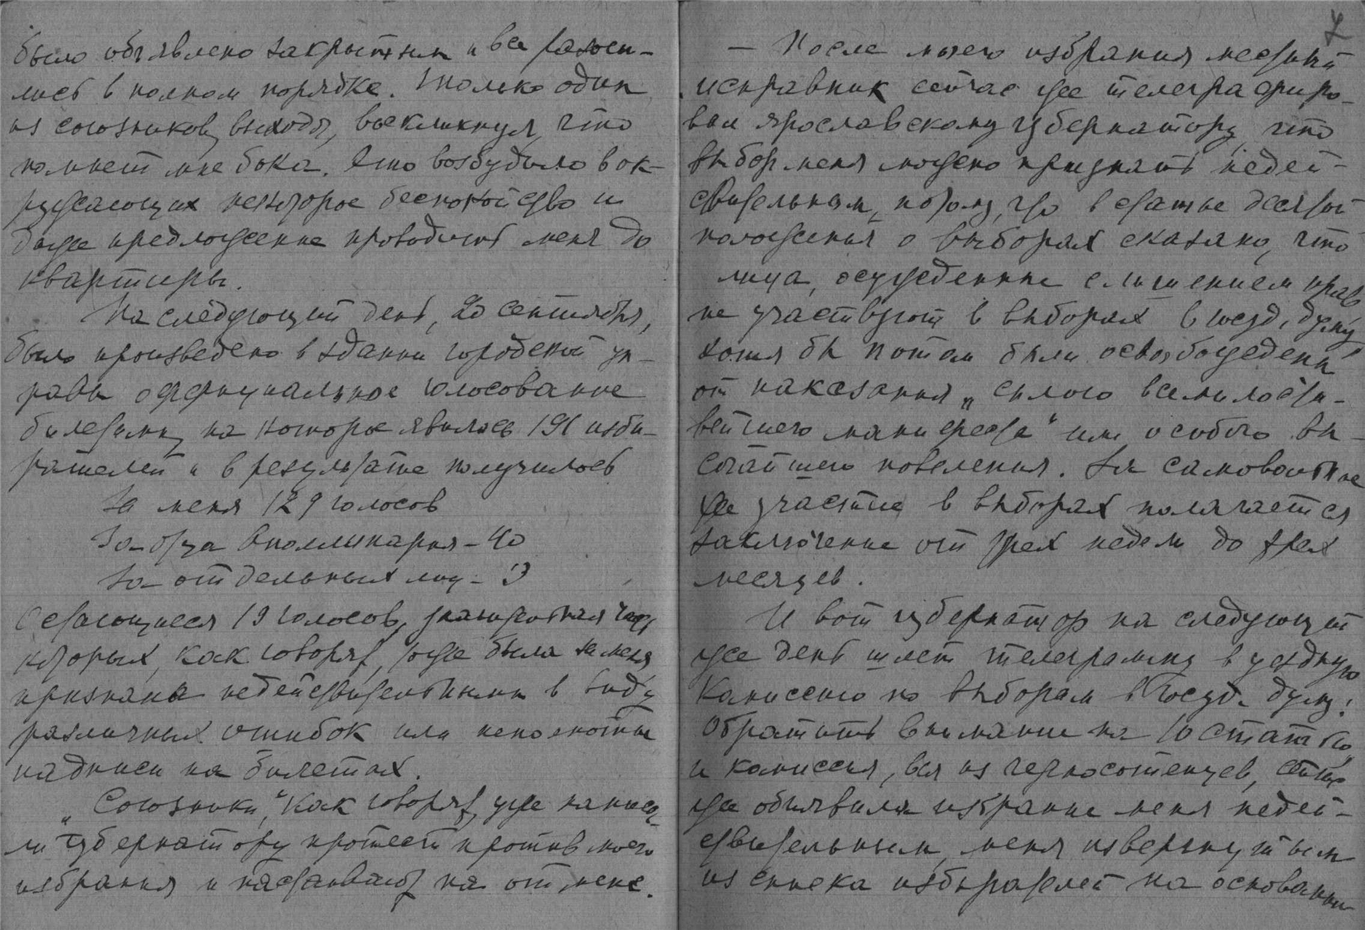 было объявлено закрытым и все разош-
лись в полном порядке. Только один
из союзников, выходя, воскликнул, что
помнет мне бока. Это возбудило в ок-
ружающих некоторое беспокойство и
даже предложение проводить меня до
квартиры.
На следующий день, 20 сентября,
было произведено в здании городской уп-
равы официальное голосование
билетами, на которое явилось 191 изби-
рателей и в результате получилось
За меня 129 голосов
За отца Аполлинария - 40
За отдельных лиц - 3
Остающиеся 19 голосов, значительная часть
которых, как говорят, тоже была за меня
признана недействительными в виду
различных ошибок или непонятных
надписи на билетах.
„Союзники“, как говорят, уже написа-
ли губернатору протест против моего
избрания и настаивают на отмене.
— После моего избрания местный
исправник сейчас же телеграфиро-
вал ярославскому губернатору, что
выбор меня можно признать недей-
ствительным, потому, что в статье десятой
положения о выборах сказано, что
лица, осужденные с лишением прав
не участвуют в выборах в Госуд. думу
хотя бы потом были освобождены
от наказания „силою всемилости-
вейшего манифеста“ или особого вы-
сочайшего повеления. За самовольное
же участие в выборах полагается
заключение от трех недель до трех
месяцев.
И вот губернатор на следующий
же день шлет телеграмму в уездную
комиссию по выборам в Госуд. думу:
Обратить внимание на 10 статью,
и комиссия, вся из черносотенцев, сейчас
же объявила избрание меня недей-
ствительным, меня извергнутым
из списка избирателей на основании